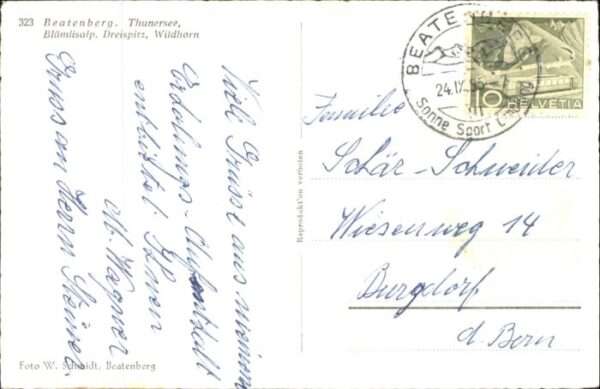 323 Beatenberg. Thunersee,
Blümlisalp. Dreispitz, Wildhorn
Viele Grüsse aus meinem
Erholungs-Aufenthalt
entbietet Ihnen
M. Wagner
Gruss an Herrn
Foto W. Schmidt, Beatenberg
Reproduktion verboten
BEATENBERG
24.IX.55
Sonne Sport
10 HELVETIA
Familie
Schär-Schweiter
Wiesenweg 14
Burgdorf
d. Bern